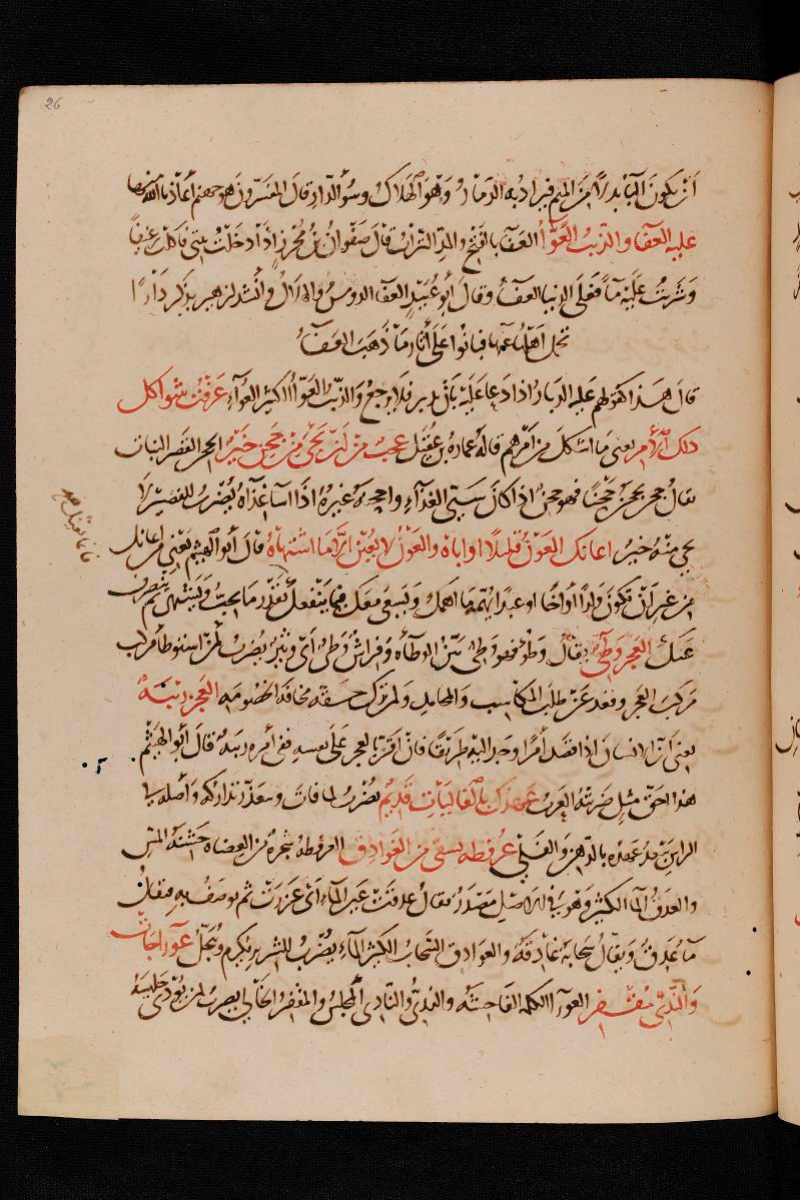 26
أن يكون الباء بدلا من الميم فيراد به الدمار وهو الهلاك وسوء الدار قال المفسرون هو جهنم أعاذنا الله منها
عليه العفا والذئب العواء العفاء بالفتح والمد التراب قال صفوان بن محرز اذا دخلت بيتي فأكلت رغيفا
وشربت عليه ماء فعلى الدنيا العفاء وقال أبو عبيد العفاء الدروس والهلاك وأنشد لزهير يذكر دارا
تحمل أهلها عنها فبانوا على آثار ما ذهب العفاء
قال هذا كقولهم عليه الدبار اذا دعا عليه بأن يدبر فلا يرجع والذئب العواء الكثير العواء عرفت شواكل
ذلك الأمر يعني ما اشكل من امرهم قاله عمارة بن عقيل عجب من أن يجيء من جحن خير الجحن القصير النبات
يقال جحن يجحن جحنا فهو جحن اذا كان سيئ الغذاء واجحنه غيره اذا أساء غذاه يضرب للقصير لا
يجي منه خير اعانك العون قليلا او اباه والعون لا يعين الا ما اشتهاه قال أبو الهيثم يعني من اعانك
من غير أن يكون ولدا أو أخا او عبدا يهتم بما اهمك ويسعى معك فيما ينفعك بقدر ما يحب ويشتهي ثم ينصرف
عنك العجز وطيء يقال وطؤ فهو وطئ بين الوطاءة وفراش وطئ أي وثير يضرب لمن استوطأ مركب
مركب العجز وقعد عن طلب المكاسب والمحامد ولم يترك حقه مخافة الخصومة العجز ريبة
يعني أن الانسان اذا قصد أمرا وجد اليه طريقا فان اقر بالعجز على نفسه ففي أمره ريبة قال أبو الهيثم
هذا احق مثل ضربته العرب عهدك بالغاليات قديم يضرب لما فات ويتعذر تداركه وأصله في
الراس يبعد عهده بالدهن والفلي عرفطة تسقى من الغوادق العرفطة شجرة من العضاه خشنة المس
والغدق الماء الكثير وهو في الاصل مصدر يقال غدقت عين الماء أي غزرت ثم يوصف به فيقال
ماء غدق ويقال سحابة غادقة والغوادق السحاب الكثير الماء يضرب للشرير يكرم ويبجل عوراء جاءت
والندي مقفر العوراء الكلمة الفاحشة والندي والنادي المجلس والمقفر الخالي يضرب لمن يؤذي جليسه